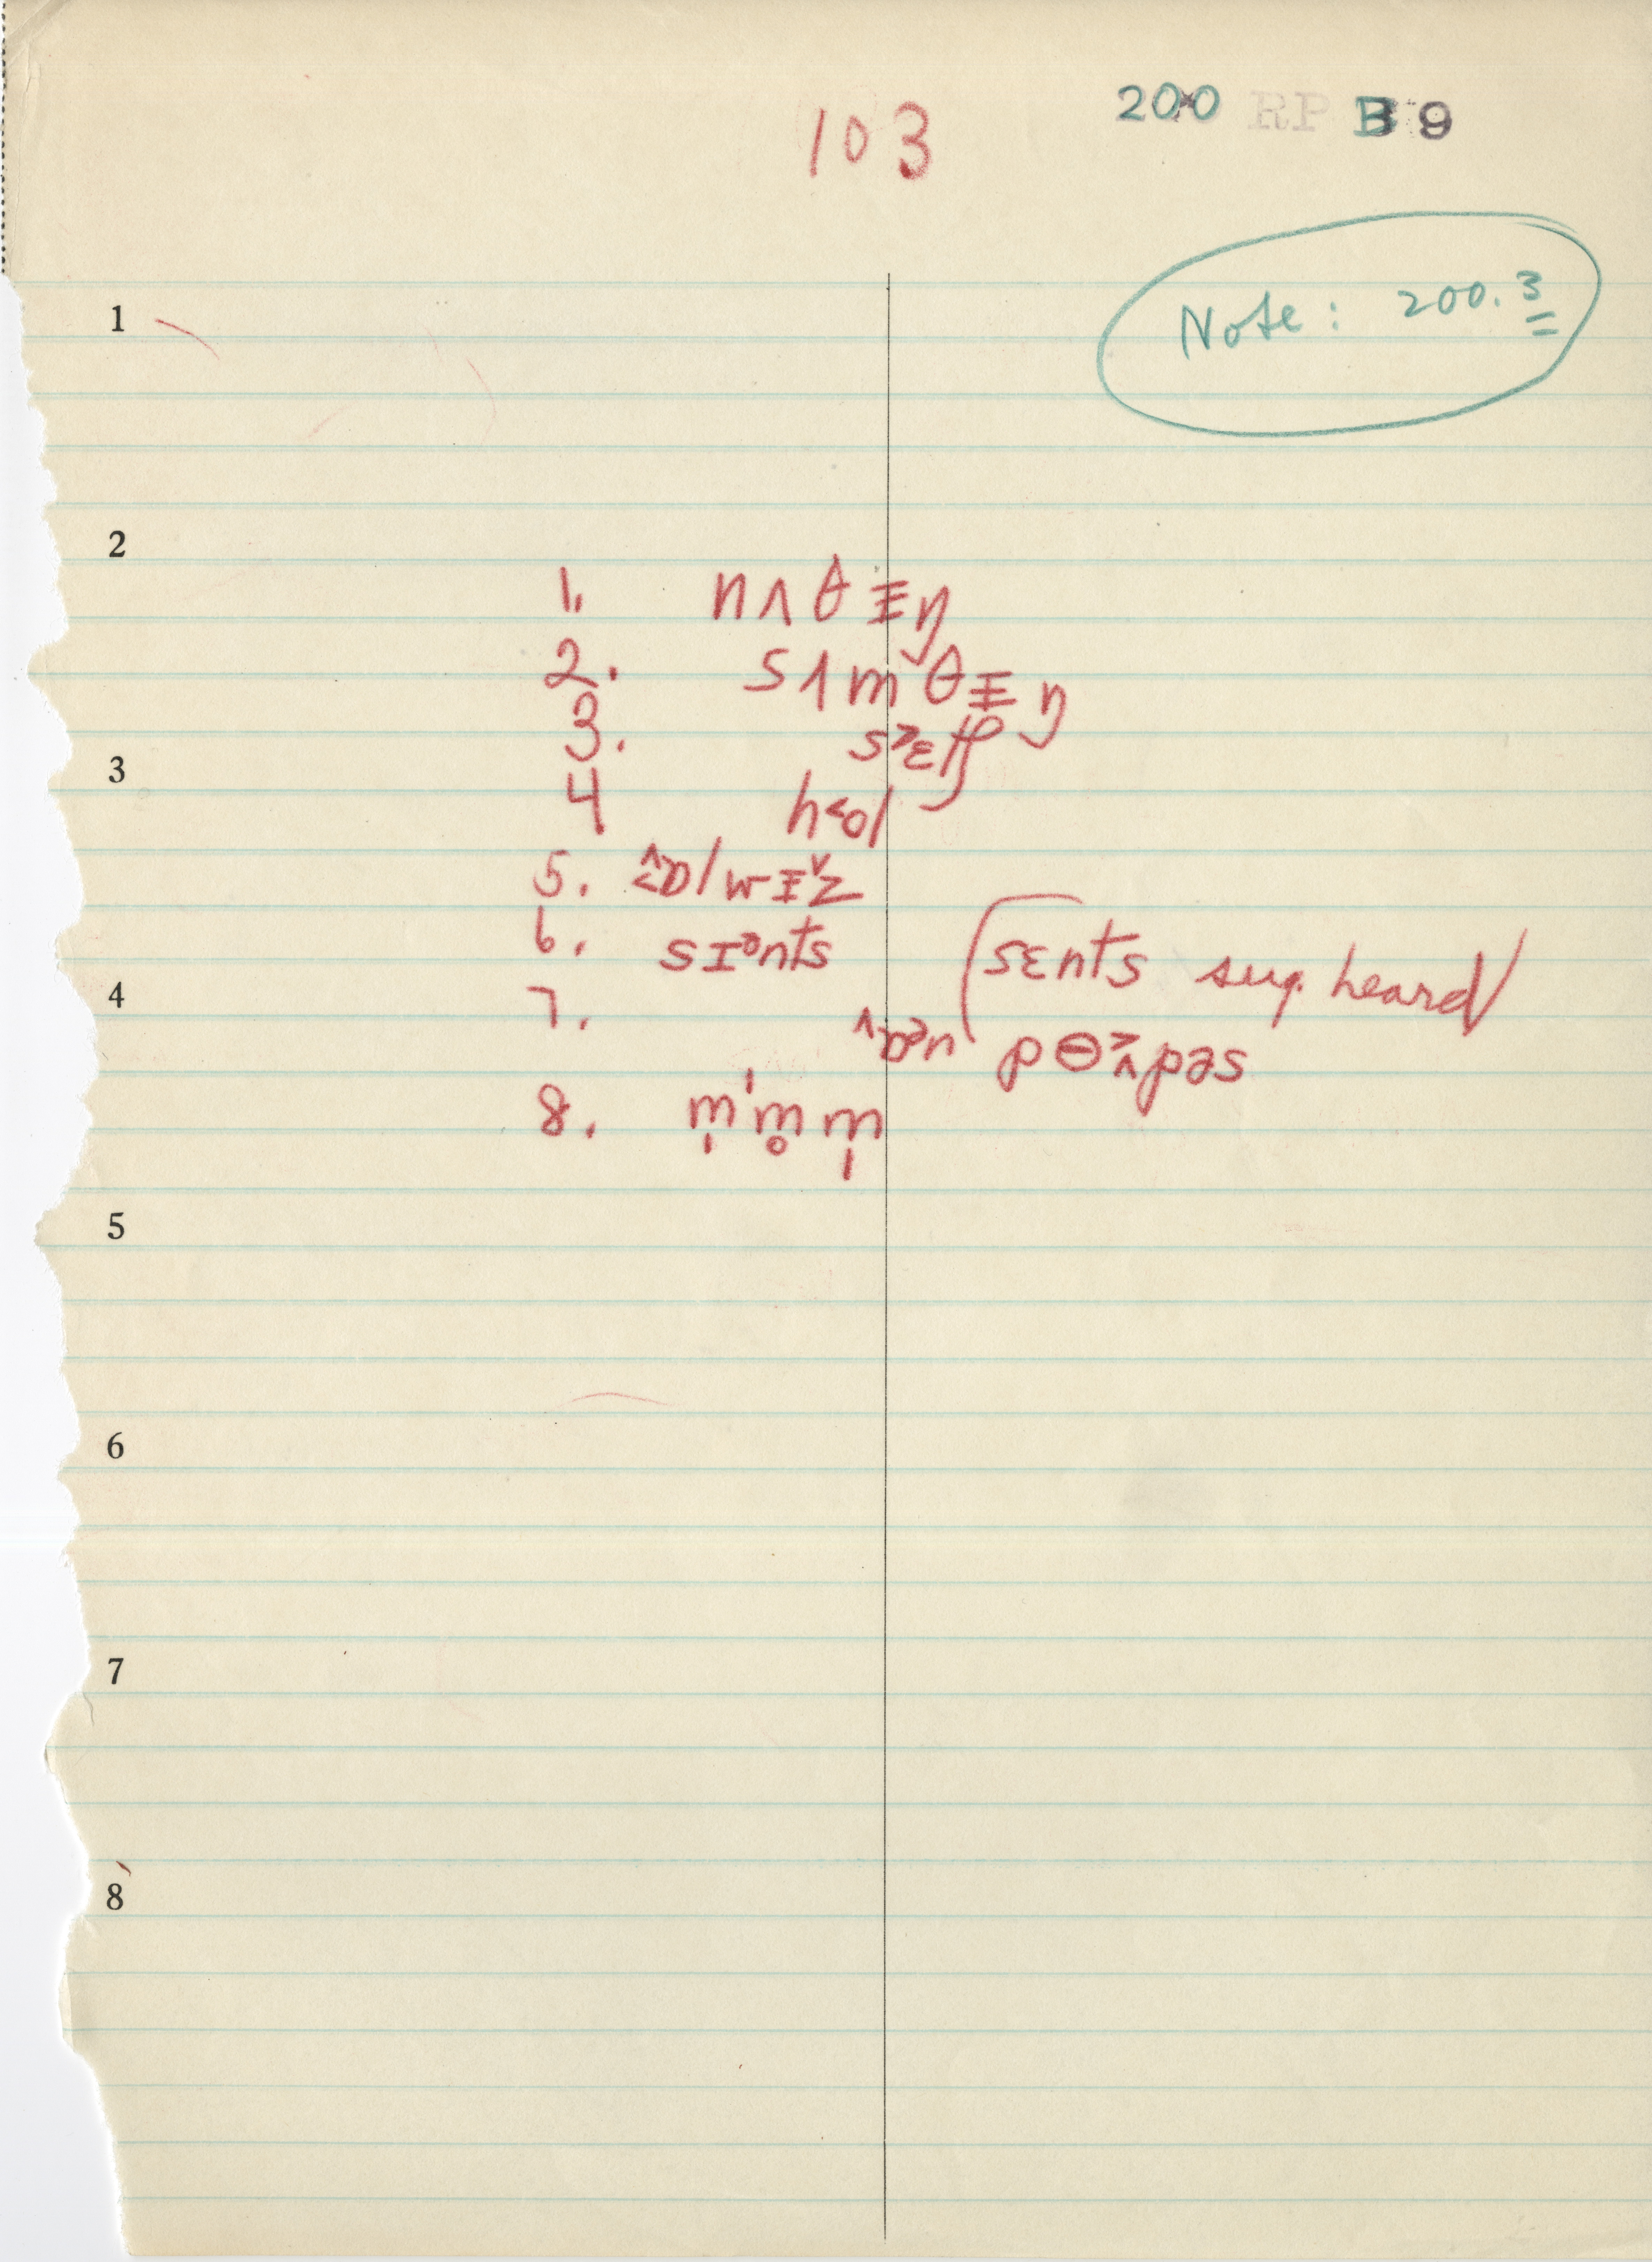 103
200 RP B 9
Note: 200.3
1
2
1. nʌθɪŋ
2. sʌmθɪŋ
3.
3
4 h˂ol
5. wɪ˅z
6. sɪᵊnts [sɛnts sug. heard
4
7.
8. m̩ m̥ m̩
5
6
7
8